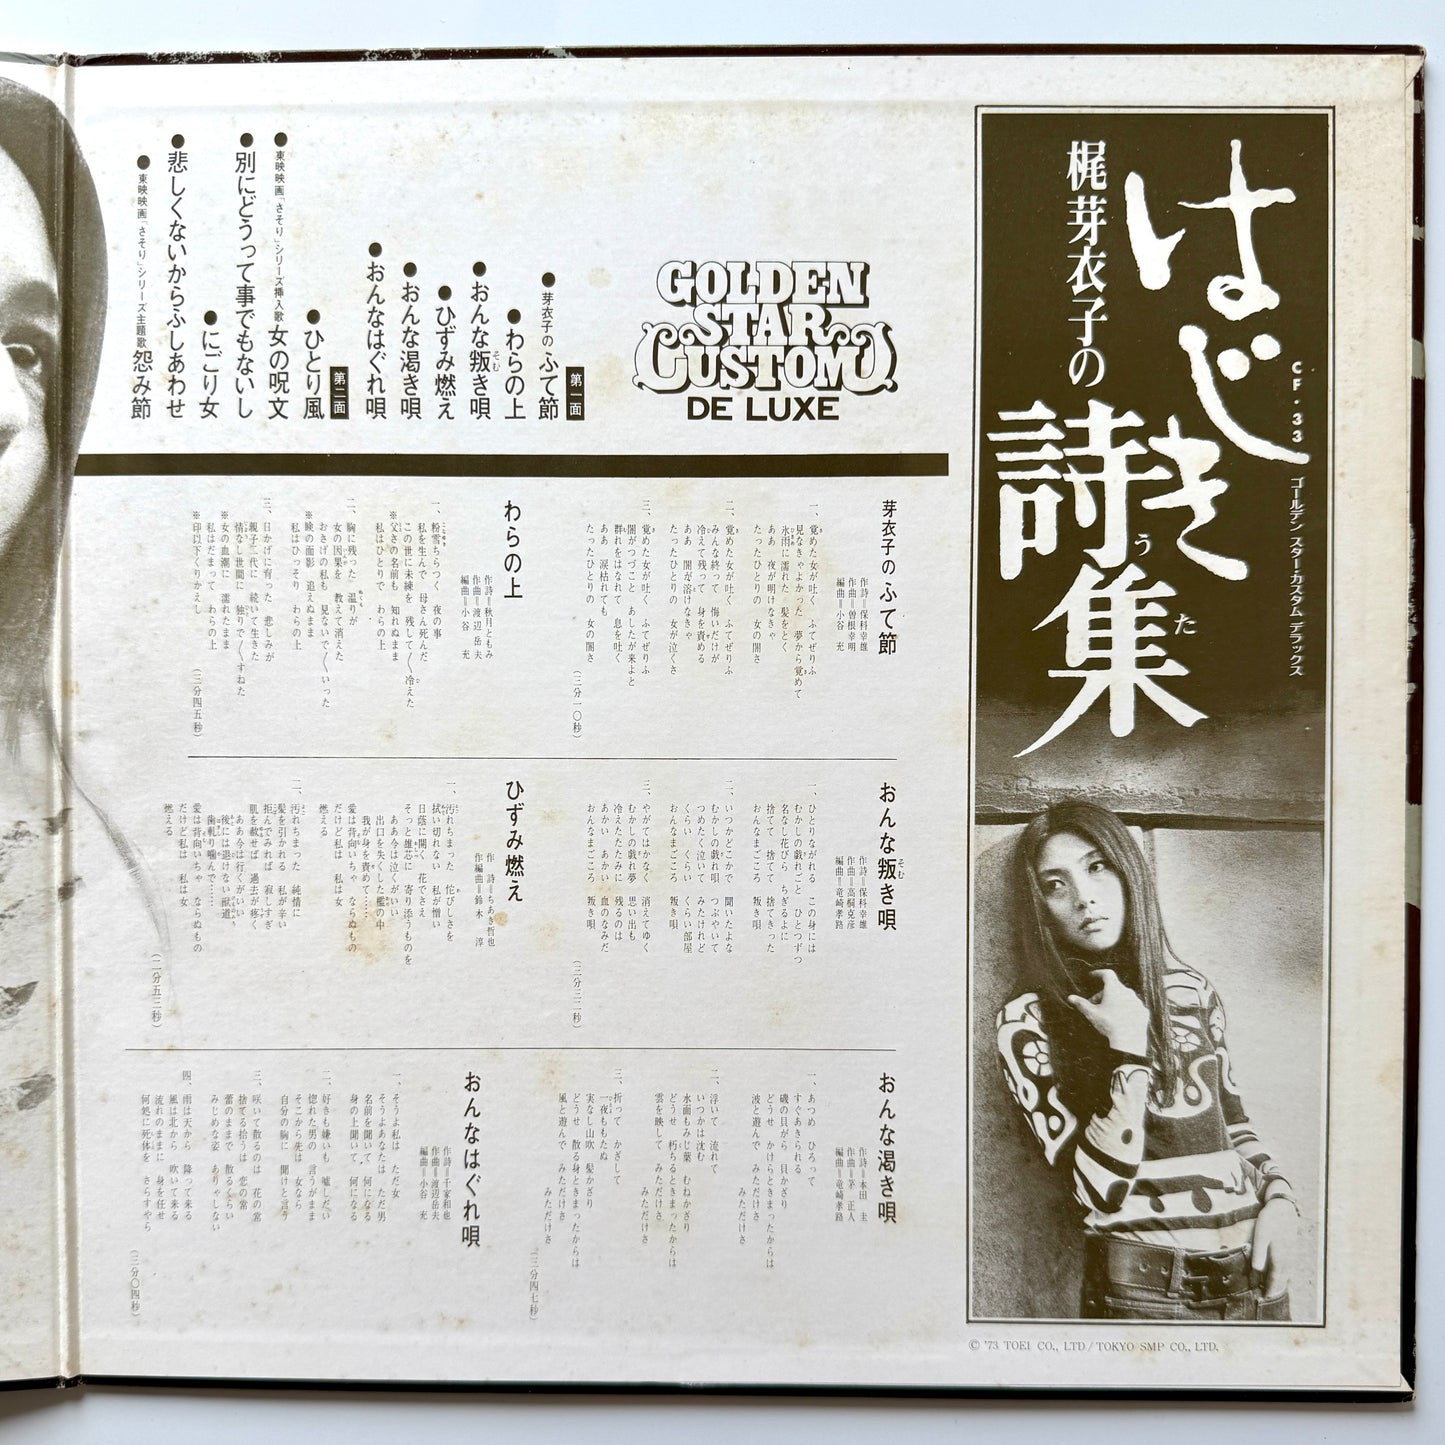 はじき
詩集
うた
梶芽衣子の
CF・33 ゴールデン スター・カスタム デラックス
GOLDEN
STAR
CUSTOM
DE LUXE
第一面
●芽衣子のふて節
●わらの上
●おんな叛き唄
そむ
●ひずみ燃え
●おんな渇き唄
●おんなはぐれ唄
第二面
●ひとり風
●東映映画「さそり」シリーズ挿入歌 女の呪文
●別にどうって事でもないし
●にごり女
●悲しくないからふしあわせ
●東映映画「さそり」シリーズ主題歌 怨み節
芽衣子のふて節
作詩＝保科幸雄
作曲＝曽根幸明
編曲＝小谷 充
一、覚めた女が吐く ふてぜりふ
見なきゃよかった 夢から覚めて
氷雨に濡れた 髪をとく
ああ 夜が明けなきゃ
たったひとりの 女の闇さ
二、覚めた女が吐く ふてぜりふ
みんな終って 悔いだけが
冷えて残って 身を責める
ああ 闇が溶けなきゃ
たったひとりの 女が泣くさ
三、覚めた女が吐く ふてぜりふ
闇がつづこと あしたが来よと
群れをはなれて 息を吐く
ああ 涙枯れても
たったひとりの 女の闇さ
(三分一〇秒)
わらの上
作詩＝秋月ともみ
作曲＝渡辺岳夫
編曲＝小谷 充
一、粉雪ちらつく 夜の事
私を生んで 母さん死んだ
この世に未練を 残して〱冷えた
※父さの名前も 知れぬまま
私はひとりで わらの上
二、胸に残った 温りが
女の因果を 教えて消えた
おきざの私も 見ないで〱いった
※瞼の面影 追えぬまま
私はひっそり わらの上
三、日かげに育った 悲しみが
親子二代に 続いて生きた
情なし世間に 独りで〱すねた
※女の血潮に 濡れたまま
私はだまって わらの上
※印以下くりかえし
(三分四五秒)
おんな叛き唄
そむ
作詩＝保科幸雄
作曲＝高桐克彦
編曲＝竜崎孝路
一、ひとりながれる この身には
むかしの戯れごと ひとつずつ
名なし花びら ちぎるよに
捨てて 捨てて 捨てきった
おんなまごころ 叛き唄
二、いつかどこかで 聞いたよな
むかしの戯れ唄 つぶやいて
つめたく泣いて みたけれど
くらい くらい くらい部屋
おんなまごころ 叛き唄
三、やがてはかなく 消えてゆく
むかしの戯れ夢 思い出も
冷えたたたみに 残るのは
あかい あかい 血のなみだ
おんなまごころ 叛き唄
(三分三二秒)
ひずみ燃え
作詩＝ちあき哲也
作編曲＝鈴木 淳
一、汚れちまった 侘びしさを
拭い切れない 私が憎い
日陰に開く 花でさえ
そっと雄芯に 寄り添うものを
ああ今は泣くがいい
出口を失くした檻の中
我が身を責めて……
愛は背向いちゃ ならぬもの
だけど私は 私は女
燃える
二、汚れちまった 純情に
髪を引かれる 私が辛い
拒んでみれば 寂しすぎ
肌を赦せば 過去が疼く
ああ今は行くがいい
後には退けない獣道
歯軋り噛んで……
愛は背向いちゃ ならぬもの
だけど私は 私は女
燃える
(二分五三秒)
おんな渇き唄
作詩＝本田 圭
作曲＝茅 正人
編曲＝竜崎孝路
一、あつめ ひろって
すぐあきられる
磯の貝がら 貝かざり
どうせ かけらときまったからは
波と遊んで みただけさ
みただけさ
二、浮いて 流れて
いつかは沈む
水面もみじ葉 むねかざり
どうせ 朽ちるときまったからは
雲を映して みただけさ
みただけさ
三、折って かざして
一夜ももたぬ
実なし山吹 髪かざり
どうせ 散る身ときまったからは
風と遊んで みただけさ
みただけさ
(三分四七秒)
おんなはぐれ唄
作詩＝千家和也
作曲＝渡辺岳夫
編曲＝小谷 充
一、そうよ私は ただ女
そうよあなたは ただ男
名前を聞いて 何になる
身の上聞いて 何になる
二、好きも嫌いも 嘘しだい
惚れた男の 言うがまま
そこから先は 女なら
自分の胸に 聞けと言う
三、咲いて散るのは 花の常
捨てる拾うは 恋の常
蕾のままで 散るくらい
みじめな姿 ありゃしない
四、雨は天から 降って来る
風は北から 吹いて来る
流れのままに 身を任せ
何処に死体を さらすやら
(三分〇四秒)
© '73 TOEI CO., LTD / TOKYO SMP CO., LTD.